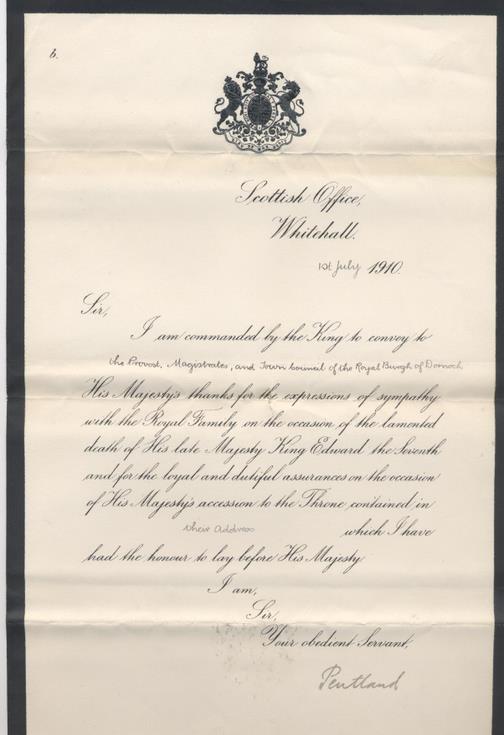 6.
Scottish Office,
Whitehall.
1st July 1910.
Sir,
I am commanded by the King to convey to
the Provost, Magistrates, and Town Council of the Royal Burgh of Dornoch
His Majesty's thanks for the expressions of sympathy
with the Royal Family on the occasion of the lamented
death of His late Majesty King Edward the Seventh
and for the loyal and dutiful assurances on the occasion
of His Majesty's accession to the Throne contained in
their Address which I have
had the honour to lay before His Majesty
I am,
Sir,
Your obedient Servant,
Pentland